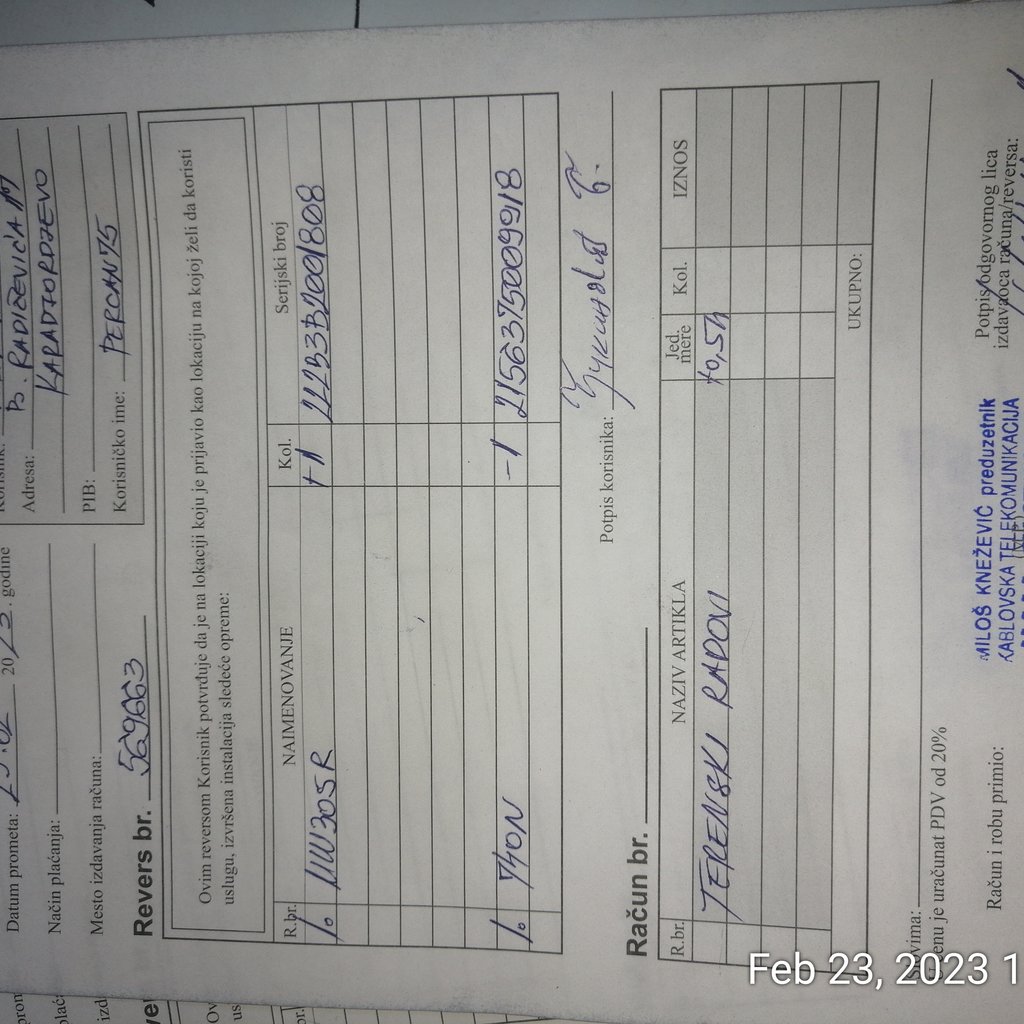 Adresa: B. RADIČEVIĆA 117
KARADJORDJEVO
PIB:
Korisničko ime: PERCAN75
Datum prometa: 23.02 2023. godine
Način plaćanja:
Mesto izdavanja računa:
Revers br. 569663
Ovim reversom Korisnik potvrđuje da je na lokaciji koju je prijavio kao lokaciju na kojoj želi da koristi
uslugu, izvršena instalacija sledeće opreme:
R.br. NAIMENOVANJE Kol. Serijski broj
1. MW305R +1 222B3B2001808
1. 740N -1 2156375009918
Potpis korisnika:
Račun br.
R.br. NAZIV ARTIKLA Jed. mere Kol. IZNOS
TERENSKI RADOVI +0,5h
UKUPNO:
enu je uračunat PDV od 20%
Račun i robu primio:
MILOŠ KNEŽEVIĆ preduzetnik
KABLOVSKA TELEKOMUNIKACIJA
(M.P.)
Potpis odgovornog lica
izdavaoca računa/reversa:
Feb 23, 2023 1